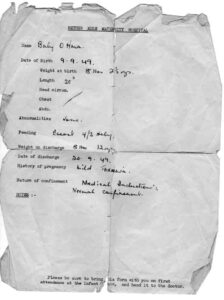 MATERNITY HOSPITAL
Name Baby O'Hara.
Date of Birth 9. 9. 49.
Weight at birth 8 lbs 2½ ozs.
Length 20"
Head circum.
Chest
Abdo.
Abnormalities None.
Feeding Breast 4/2 hrly.
Weight on discharge 8 lbs 12 ozs.
Date of discharge 20. 9. 49.
History of pregnancy Mild Toxaemia.
Nature of confinement Medical Induction.
Normal Confinement.
NOTES :-
Please be sure to bring this form with you on first
attendance at the Infant and hand it to the doctor.